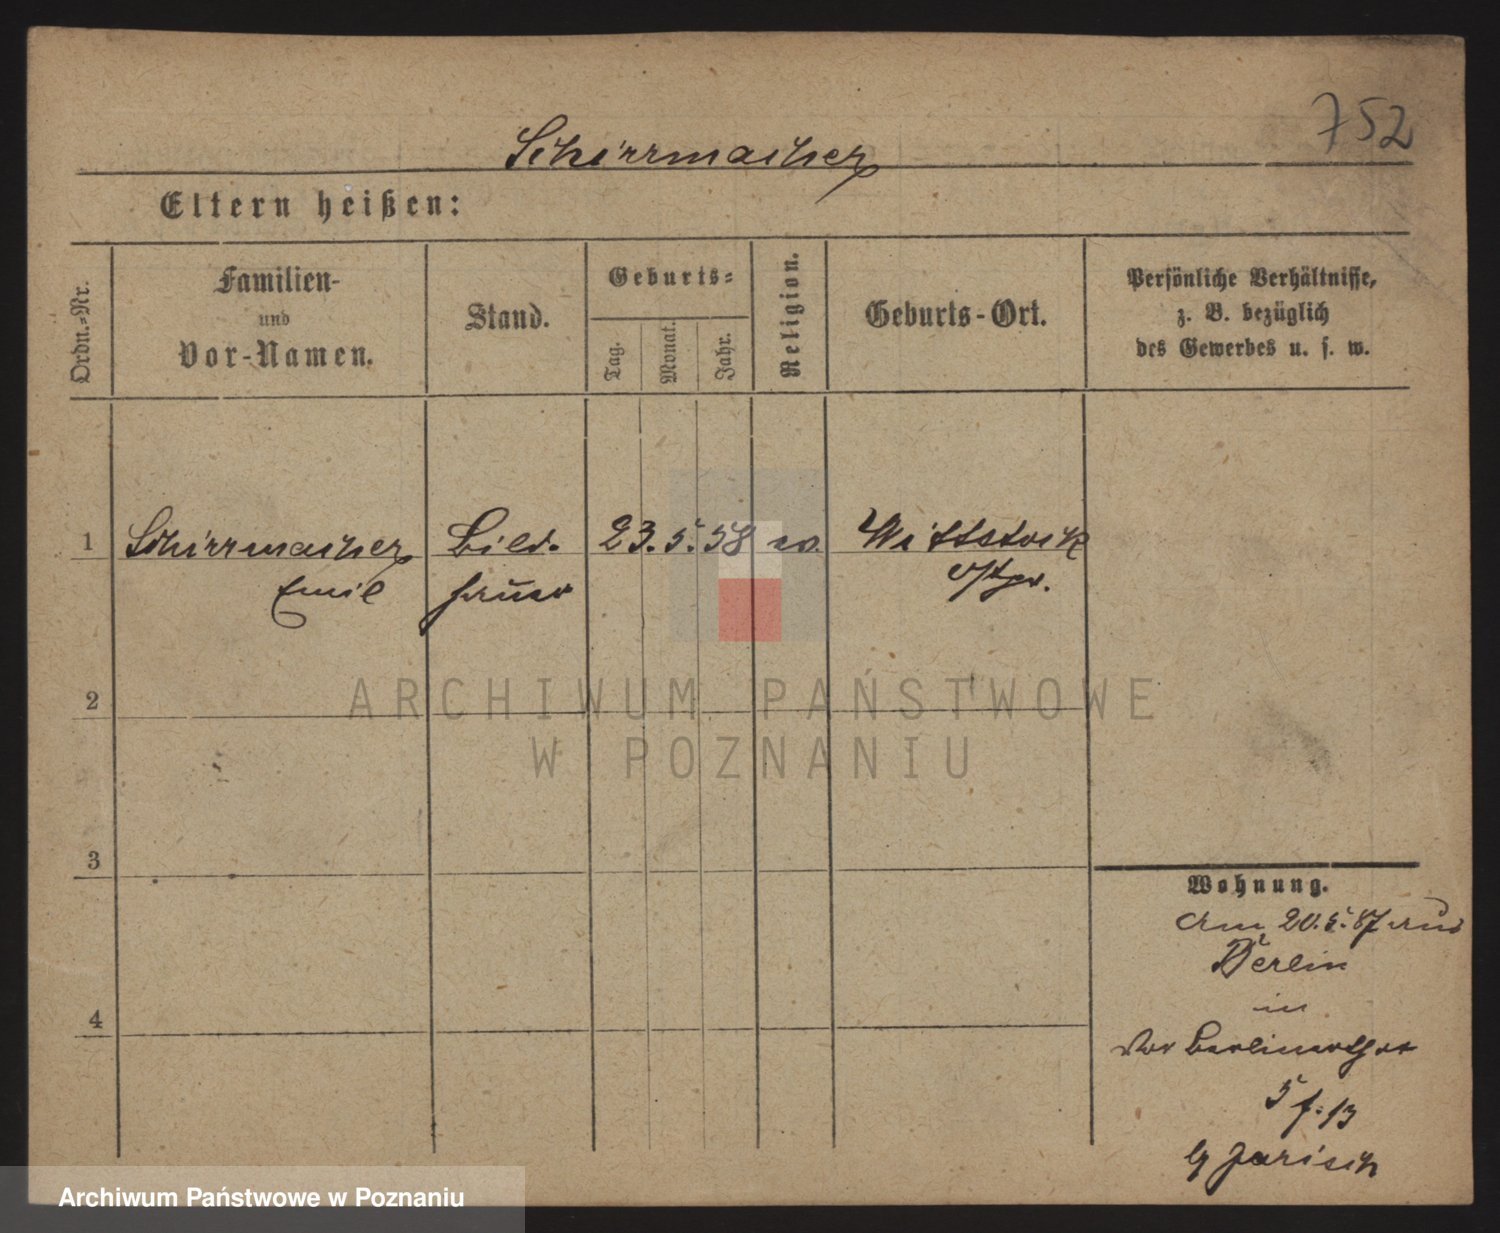 752
Schirrmacher
Eltern heißen:
Ordn.-Nr.
Familien-
und
Vor-Namen.
Stand.
Geburts-
Tag.
Monat.
Jahr.
Religion.
Geburts-Ort.
Persönliche Verhältnisse,
z. B. bezüglich
des Gewerbes u. s. w.
1
Schirrmacher
Emil
Bild-
hauer
23. 5. 58
ev.
Wittstock
2
3
4
Wohnung.
Am 20. 5. 87 aus
Berlin
in
Vor Berlinerthor
5
b/ Jarisch
ARCHIWUM PAŃSTWOWE
W POZNANIU
Archiwum Państwowe w Poznaniu